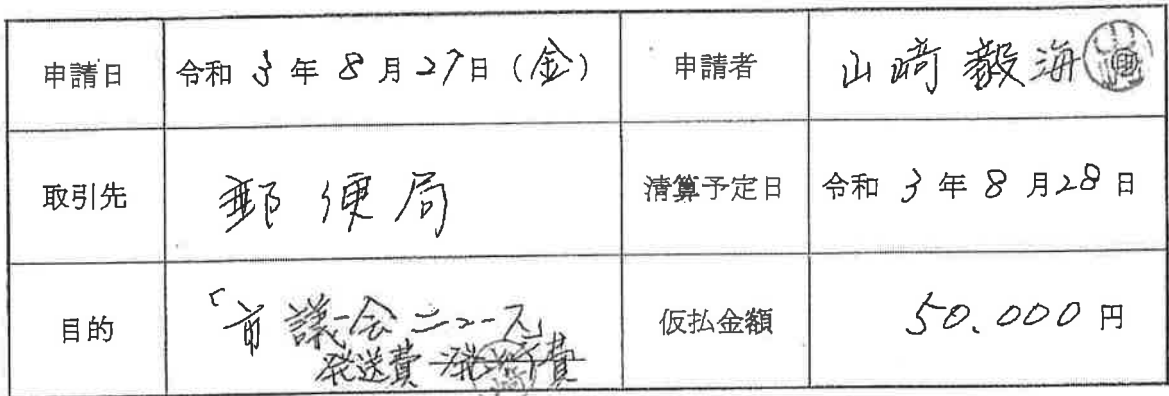 申請日 令和 3 年 8 月 27 日 (金) 申請者 山﨑 毅海
取引先 郵便局 清算予定日 令和 3 年 8 月 28 日
目的 「市議会ニュース」 仮払金額 50.000 円
発送費